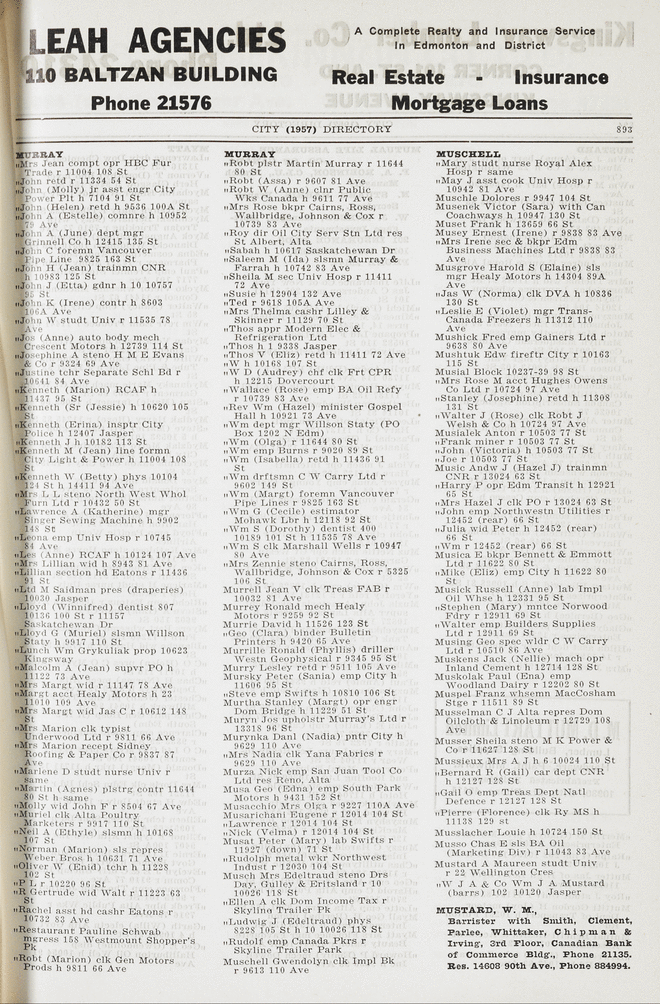 LEAH AGENCIES
110 BALTZAN BUILDING
Phone 21576
A Complete Realty and Insurance Service
In Edmonton and District
Real Estate - Insurance
Mortgage Loans
CITY (1957) DIRECTORY 893
MURRAY
„Mrs Jean compt opr HBC Fur
Trade r 11004 108 St
„John retd r 11334 54 St
„John (Molly) jr asst engr City
Power Plt h 7104 91 St
„John (Helen) retd h 9536 100A St
„John A (Estelle) comnre h 10952
79 Ave
„John A (June) dept mgr
Grinnell Co h 12415 135 St
„John C foremn Vancouver
Pipe Line 9825 163 St
„John H (Jean) trainmn CNR
h 10983 125 St
„John J (Etta) gdnr h 10 10757
95 St
„John K (Irene) contr h 8603
106A Ave
„John W studt Univ r 11535 78
Ave
„Jos (Anne) auto body mech
Crescent Motors h 12739 114 St
„Josephine A steno H M E Evans
& Co r 9324 69 Ave
„Justine tchr Separate Schl Bd r
10641 84 Ave
„Kenneth (Marion) RCAF h
11437 95 St
„Kenneth (Sr (Jessie) h 10620 105
St
„Kenneth (Erina) insptr City
Police h 12407 Jasper
„Kenneth J h 10182 113 St
„Kenneth M (Jean) line formn
City Light & Power h 11004 108
St
„Kenneth W (Betty) phys 10104
124 St h 14411 94 Ave
„Mrs L L steno North West Whol
Furn Ltd r 10432 50 St
„Lawrence A (Katherine) mgr
Singer Sewing Machine h 9902
148 St
„Leona emp Univ Hosp r 10745
84 Ave
„Les (Anne) RCAF h 10124 107 Ave
„Mrs Lillian wid h 8943 81 Ave
„Lillian section hd Eatons r 11436
91 St
„Ltd M Saidman pres (draperies)
10030 Jasper
„Lloyd (Winnifred) dentist 807
10136 100 St r 11157
Saskatchewan Dr
„Lloyd G (Muriel) slsmn Willson
Staty h 9917 110 St
„Lunch Wm Grykuliak prop 10623
Kingsway
„Malcolm A (Jean) supvr PO h
11122 73 Ave
„Mrs Margt wid r 11147 78 Ave
„Margt acct Healy Motors h 23
11010 109 Ave
„Mrs Margt wid Jas C r 10612 148
St
„Mrs Marion clk typist
Underwood Ltd r 9811 66 Ave
„Mrs Marion recept Sidney
Roofing & Paper Co r 9837 87
Ave
„Marlene D studt nurse Univ r
same
„Martin (Agnes) plstrg contr 11644
80 St h same
„Molly wid John F r 8504 67 Ave
„Muriel clk Alta Poultry
Marketers r 9917 110 St
„Neil A (Ethyle) slsmn h 10168
107 St
„Norman (Marion) sls repres
Weber Bros h 10631 71 Ave
„Oliver W (Enid) tchr h 11228
102 St
„P L r 10220 96 St
„R Gertrude wid Walt r 11223 63
St
„Rachel asst hd cashr Eatons r
10732 83 Ave
„Restaurant Pauline Schwab
mngress 158 Westmount Shopper's
Pk
„Robt (Marion) clk Gen Motors
Prods h 9811 66 Ave
MURRAY
„Robt plstr Martin Murray r 11644
80 St
„Robt (Assa) r 9607 81 Ave
„Robt W (Anne) clnr Public
Wks Canada h 9611 77 Ave
„Mrs Rose bkpr Cairns, Ross,
Wallbridge, Johnson & Cox r
10739 83 Ave
„Roy dir Oil City Serv Stn Ltd res
St Albert, Alta
„Sabah h 10617 Saskatchewan Dr
„Saleem M (Ida) slsmn Murray &
Farrah h 10742 83 Ave
„Sheila M sec Univ Hosp r 11411
72 Ave
„Susie h 12904 132 Ave
„Ted r 9618 105A Ave
„Mrs Thelma cashr Lilley &
Skinner r 11129 70 St
„Thos appr Modern Elec &
Refrigeration Ltd
„Thos h 1 9338 Jasper
„Thos V (Eliz) retd h 11411 72 Ave
„W h 10168 107 St
„W D (Audrey) chf clk Frt CPR
h 12215 Dovercourt
„Wallace (Rose) emp BA Oil Refy
r 10739 83 Ave
„Rev Wm (Hazel) minister Gospel
Hall h 10921 73 Ave
„Wm dept mgr Willson Staty (PO
Box 1202 N Edm)
„Wm (Olga) r 11644 80 St
„Wm emp Burns r 9020 89 St
„Wm (Isabella) retd h 11436 91
St
„Wm drftsmn C W Carry Ltd r
9602 149 St
„Wm (Margt) foremn Vancouver
Pipe Lines r 9825 163 St
„Wm G (Cecile) estimator
Mohawk Lbr h 12118 92 St
„Wm S (Dorothy) dentist 400
10189 101 St h 11535 78 Ave
„Wm S clk Marshall Wells r 10947
80 Ave
„Mrs Zennie steno Cairns, Ross,
Wallbridge, Johnson & Cox r 5325
106 St
Murrell Jean V clk Treas FAB r
10032 81 Ave
Murrey Ronald mech Healy
Motors r 9259 92 St
Murrie David h 11526 123 St
„Geo (Clara) binder Bulletin
Printers h 9420 65 Ave
Murrille Ronald (Phyllis) driller
Westn Geophysical r 9345 95 St
Murry Lesley retd r 9511 105 Ave
Mursky Peter (Sania) emp City h
11606 95 St
„Steve emp Swifts h 10810 106 St
Murtha Stanley (Margt) opr engr
Dom Bridge h 11229 51 St
Muryn Jos upholstr Murray's Ltd r
13318 96 St
Murynka Danl (Nadia) pntr City h
9629 110 Ave
„Mrs Nadia clk Yana Fabrics r
9629 110 Ave
Murza Nick emp San Juan Tool Co
Ltd res Reno, Alta
Musa Geo (Edna) emp South Park
Motors h 9431 152 St
Musacchio Mrs Olga r 9227 110A Ave
Musarichani Eugene r 12014 104 St
„Lawrence r 12014 104 St
„Nick (Velma) r 12014 104 St
Musat Peter (Mary) lab Swifts r
11927 (down) 71 St
„Rudolph metal wkr Northwest
Indust r 12030 104 St
Musch Mrs Edeltraud steno Drs
Day, Gulley & Eritsland r 10
10026 118 St
„Ellen A clk Dom Income Tax r
Skyline Trailer Pk
„Ludwig J (Edeltraud) phys
8228 105 St h 10 10026 118 St
„Rudolf emp Canada Pkrs r
Skyline Trailer Park
Muschell Gwendolyn clk Impl Bk
r 9613 110 Ave
MUSCHELL
„Mary studt nurse Royal Alex
Hosp r same
„May J asst cook Univ Hosp r
10942 81 Ave
Muschle Dolores r 9947 104 St
Musenek Victor (Sara) with Can
Coachways h 10947 130 St
Muset Frank h 13659 66 St
Musey Ernest (Irene) r 9838 83 Ave
„Mrs Irene sec & bkpr Edm
Business Machines Ltd r 9838 83
Ave
Musgrove Harold S (Elaine) sls
mgr Healy Motors h 14304 89A
Ave
„Jas W (Norma) clk DVA h 10836
130 St
„Leslie E (Violet) mgr Trans-
Canada Freezers h 11312 110
Ave
Mushick Fred emp Gainers Ltd r
9638 80 Ave
Mushtuk Edw fireftr City r 10163
115 St
Musial Block 10237-39 98 St
„Mrs Rose M acct Hughes Owens
Co Ltd r 10724 97 Ave
„Stanley (Josephine) retd h 11308
131 St
„Walter J (Rose) clk Robt J
Welsh & Co h 10724 97 Ave
Musialek Anton r 10503 77 St
„Frank miner r 10503 77 St
„John (Victoria) h 10503 77 St
„Joe r 10503 77 St
Music Andw J (Hazel J) trainmn
CNR r 13024 63 St
„Harry P opr Edm Transit h 12921
65 St
„Mrs Hazel J clk PO r 13024 63 St
„John emp Northwestn Utilities r
12452 (rear) 66 St
„Julia wid Peter h 12452 (rear)
66 St
„Wm r 12452 (rear) 66 St
Musica E bkpr Bennett & Emmott
Ltd r 11622 80 St
„Mike (Eliz) emp City h 11622 80
St
Musick Russell (Anne) lab Impl
Oil Whse h 12331 95 St
„Stephen (Mary) mntce Norwood
Fdry r 12911 69 St
„Walter emp Builders Supplies
Ltd r 12911 69 St
Musing Geo spec wldr C W Carry
Ltd r 10510 86 Ave
Muskens Jack (Nellie) mach opr
Inland Cement h 12714 128 St
Muskolak Paul (Ena) emp
Woodland Dairy r 12202 80 St
Muspel Franz whsemn MacCosham
Stge r 11511 89 St
Musselman C J Alta repres Dom
Oilcloth & Linoleum r 12729 108
Ave
Musser Sheila steno M K Power &
Co r 11627 128 St
Mussieux Mrs A J h 6 10024 110 St
„Bernard R (Gail) car dept CNR
h 12127 128 St
„Gail O emp Treas Dept Natl
Defence r 12127 128 St
„Pierre (Florence) clk Ry MS h
11138 129 st
Musslacher Louie h 10724 150 St
Musso Chas E sls BA Oil
(Marketing Div) r 11043 83 Ave
Mustard A Maureen studt Univ
r 22 Wellington Cres
„W J A & Co Wm J A Mustard
(barrs) 102 10120 Jasper
MUSTARD, W. M.,
Barrister with Smith, Clement,
Parlee, Whittaker, Chipman &
Irving, 3rd Floor, Canadian Bank
of Commerce Bldg., Phone 21135.
Res. 14608 90th Ave., Phone 884994.